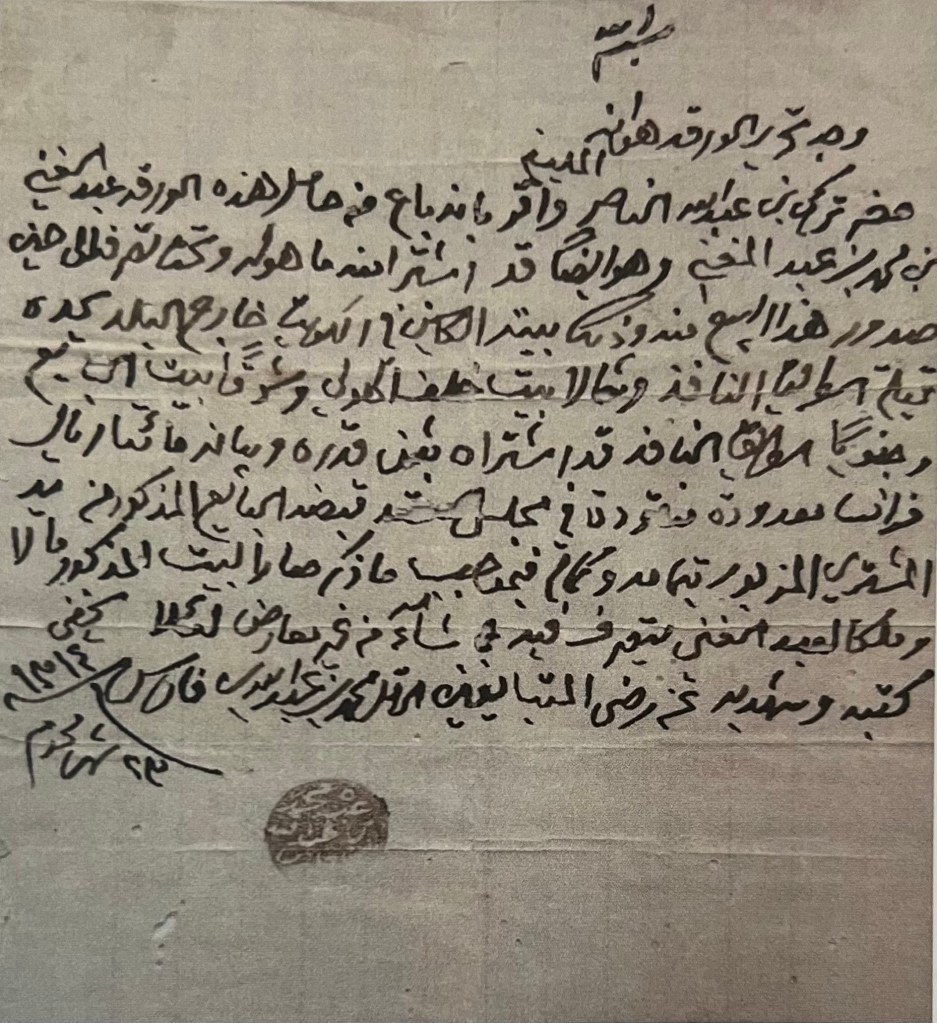 بسم الله
وجه تحرير الورقة هو انه
حضر تركي بن عبدالله الناصر واقر بانه باع من حامل هذه الورقة عبدالمغني
بن محمد بن عبد المغني وهو ايضا قد اشترا منه ما هو له وتحت تصرفه الى حين
صدور هذا البيع منه وذلك بيته الكائن في الكويت خارج البلد يحده
قبلة الطريق النافذ وشمالا بيت خلف وشرقا بيت
وجنوبا الطريق النافذ قد اشتراه بثمن قدره وبيانه مائتا ريال
فرانسا معدودة منقودة في مجلس العقد قبضه البائع المذكور من يد
المشتري المزبور بتمامه وكماله فبموجب ما ذكر صار البيت المذكور مالا
وملكا لعبد المغني يتصرف فيه كيف شاء من غير معارض له لئلا يخفى
كتبه وشهد به عن رضى المتبايعين الاقل محمد بن عبدالله بن فارس
١٣١٤ سنة
٢٣ شهر محرم